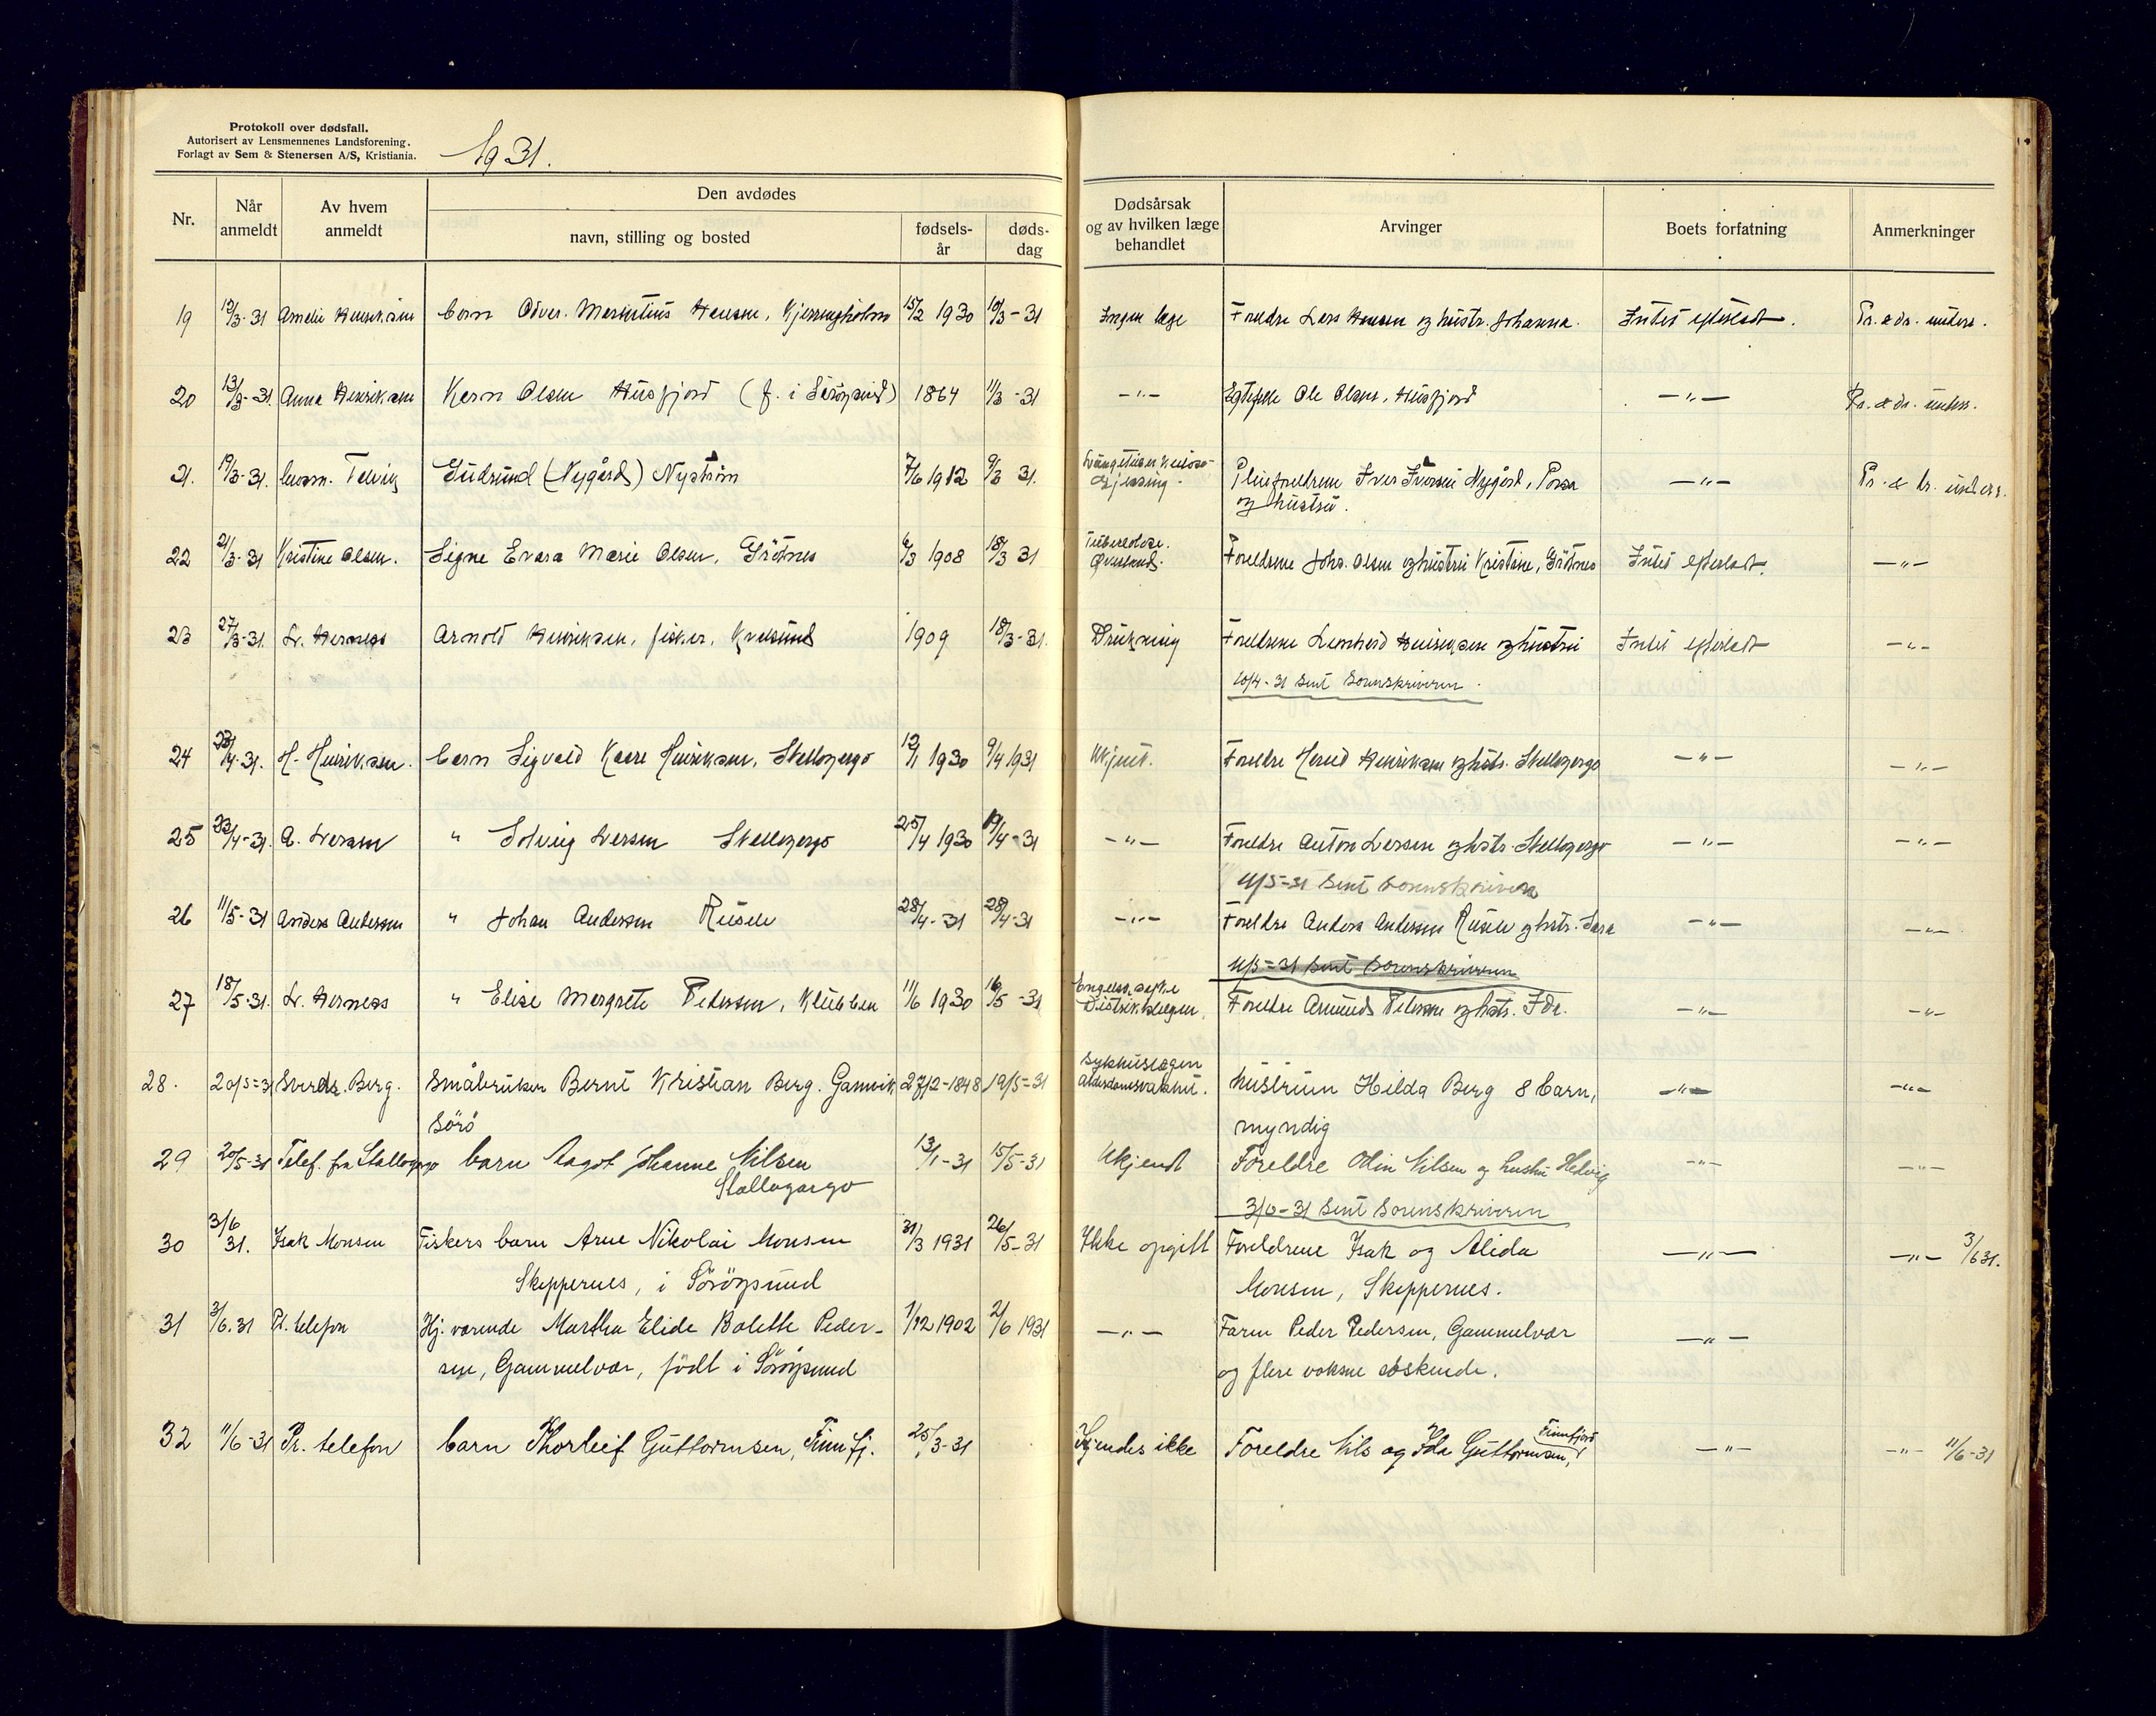 Protokoll over dødsfall.
Autorisert av Lensmennenes Landsforening.
Forlagt av Sem & Stenersen A/S, Kristiania.
1931.
Nr.
Når anmeldt
Av hvem anmeldt
Den avdødes
navn, stilling og bosted
fødsels-år
døds-dag
Dødsårsak og av hvilken læge behandlet
Arvinger
Boets forfatning
Anmerkninger
19 12/3-31 Amelie Henriksen barn Odvar Hansen, Kjerringholmen 15/2 1930 10/3-31 Ingen læge Foreldre Lars Hansen og hustr. Johanna. Intet efterladt. Pr. & dr. unders.
20 13/3-31. Anna Henriksen Karn Olsen Husfjord (f. i Sörøysund) 1864 11/3-31 -"- Egtefelle Ole Olsen, Husfjord -"- Pr. & dr. unders.
21. 19/3-31. Gudrund (Nygård) Nyström 7/6 1912 9/3 31. Lungetuberkulose
Gjessing. Pleieforeldrene Iver Iversen Nygård, Porsa -"- Pr. & dr. unders.
og hustru.
22 21/3-31 Kristine Olsen. Signe Evara Marie Olsen, Grötnes 6/3 1908 18/3 31 Tuberkulose.
Foreldrene Johs. Olsen og hustru Kristine, Grötnes Intet efterladt. -"-
23 27/3-31. L. Herness Arnold Henriksen, fisker, Kvalsund 1909 18/3-31. Drukning Foreldrene Henriksen og hustru Intet efterladt -"-
10/4-31 sent Sorenskriveren.
24 23/4-31. H. Henriksen. barn Sigvald Kaare Henriksen, Stallogargo 12/1 1930 9/4 1931 Ukjent. Foreldre Henriksen og hustr. Stallogargo -"- -"-
25 23/4-31. A. Larsen " Solveig Larsen Stallogargo 25/4 1930 19/4-31 -"- Foreldre Anton Larsen og hstr. Stallogargo -"- -"-
11/5-31 sent sorenskriveren
26 11/5-31 Anders Andersen " Johan Andersen 28/4-31 28/4-31 -"- Foreldre Anders Andersen og hstr. Sara -"- -"-
11/5-31 sent sorenskriveren
27 18/5-31. L. Herness " Elise Margrete Pedersen, Klubben 11/6 1930 16/5-31
Distriktslægen. Foreldre Amund Pedersen og hstr. Ida. -"- -"-
28. 20/5-31 Sverdr. Berg. Småbruker Bernt Kristian Berg. Gamvik 27/2-1848 19/5-31 Sykehuslægen
Alderdomsvakhet. hustruen Hilda Berg 8 barn, -"- -"-
Sörö myndig
29 20/5-31 Telef. fra Stallogargo barn Aagot Johanne Nilsen 13/1-31 15/5-31 Ukjendt Foreldre Odin Nilsen og hustru Hedvig -"- -"-
Stallogargo
3/6-31 sent sorenskriveren
30 3/6 31. Isak Monsen Fiskers barn Arne Nikolai Monsen 31/3 1931 26/5-31 Ikke opgitt Foreldrene Isak og Alida -"- -"- 3/6 31.
Skeppernes, i Söröysund Monsen, Skeppernes.
31 3/6.31 Pr. telefon Hj. værende Martha Elide Bolette Peder- 1/12 1902 2/6 1931 -"- Faren Peder Pedersen, Gammelvær -"-
sen, Gammelvær, født i Sörøysund og flere voksne søskende.
32 11/6-31 Pr. telefon barn Thorleif Guttormsen, Finnfj. 25/3-31 Kjendes ikke Foreldre Nils og Ida Guttormsen, Finnfjord -"- -"- 11/6-31